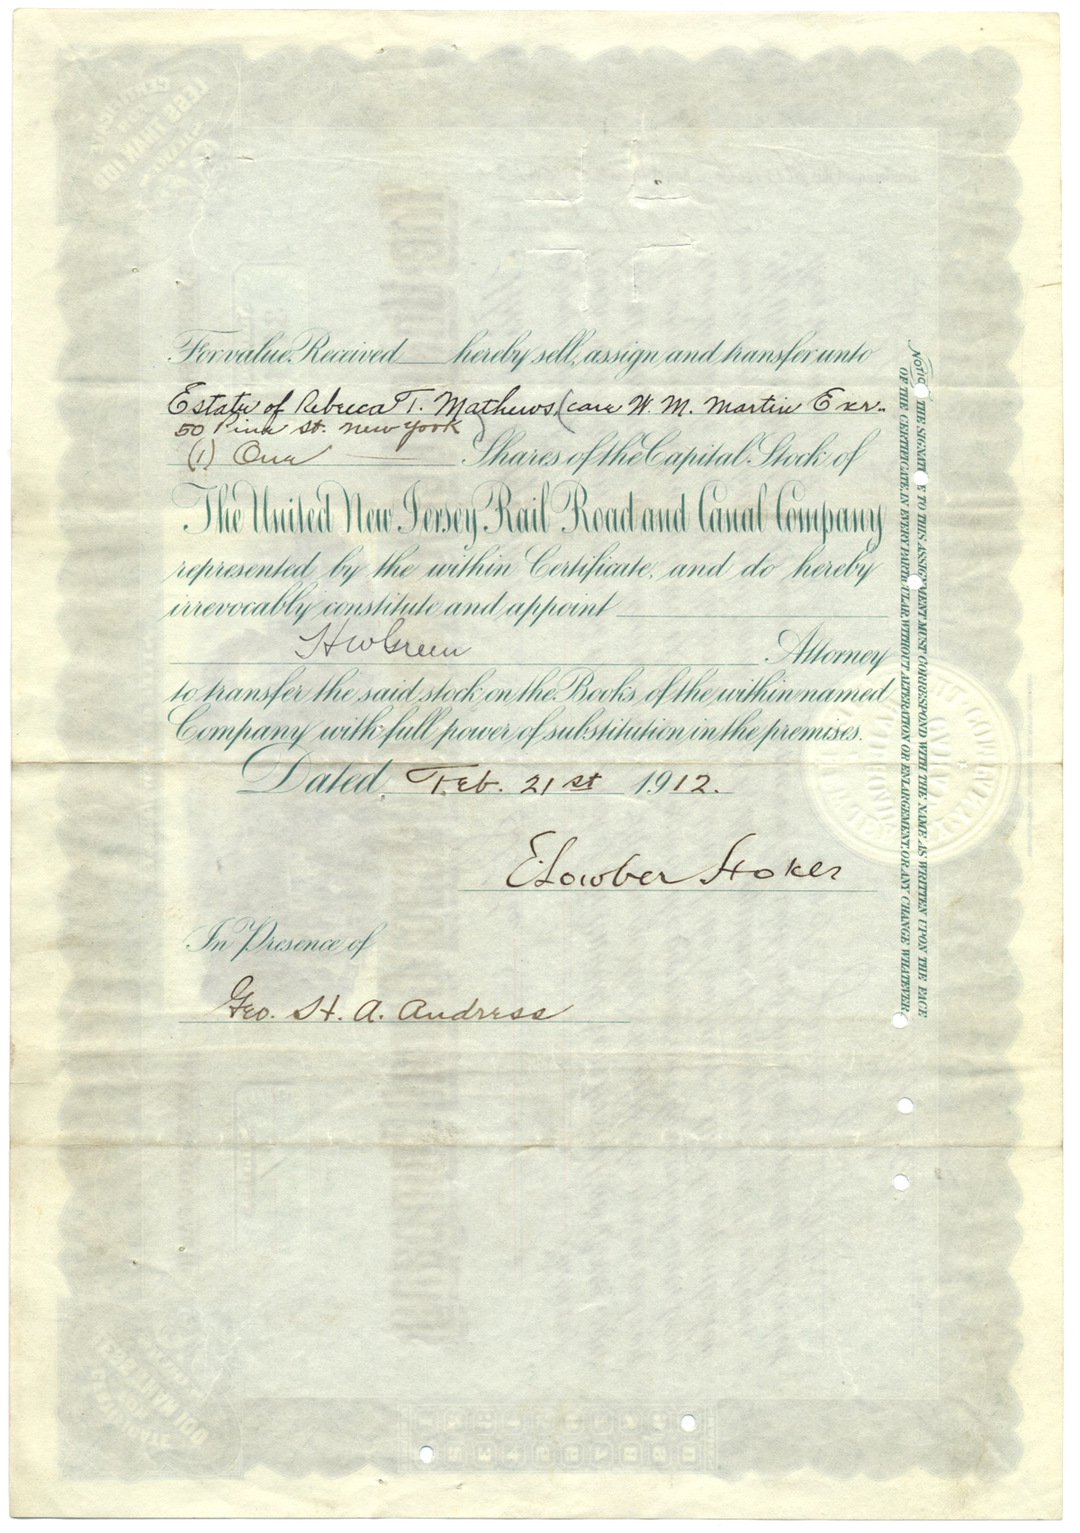 For value Received hereby sell, assign and transfer unto
Estate of Rebecca T. Mathews, (care W. M. Martin Exr.
50 Pine st. New York)
(1) One Shares of the Capital Stock of
The United New Jersey Rail Road and Canal Company
represented by the within Certificate, and do hereby
irrevocably constitute and appoint
H W Green Attorney
to transfer the said stock on the Books of the within named
Company with full power of substitution in the premises.
Dated, Feb. 21st 1912.
E. Lowber Stokes
In Presence of
Geo. H. A. Andress
NOTICE THE SIGNATURE TO THIS ASSIGNMENT MUST CORRESPOND WITH THE NAME AS WRITTEN UPON THE FACE
OF THE CERTIFICATE, IN EVERY PARTICULAR, WITHOUT ALTERATION OR ENLARGEMENT, OR ANY CHANGE WHATEVER.
CERTIFICATE
FOR
LESS THAN 100
SHARES
CERTIFICATE
FOR
LESS THAN 100
SHARES